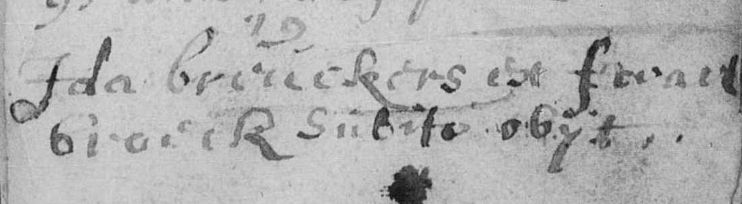 19
Ida breuckers ex swart
broeck subito obijt..